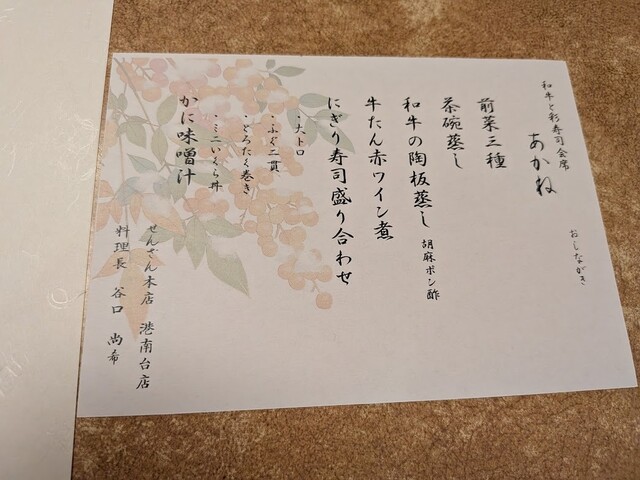 おしながき
和牛と彩寿司会席
あかね
前菜三種
茶碗蒸し
和牛の陶板蒸し 胡麻ポン酢
牛たん赤ワイン煮
にぎり寿司盛り合わせ
・大トロ
・ふぐ二貫
・とろたく巻き
・ミニいくら丼
かに味噌汁
せんざん本店 港南台店
料理長 谷口 尚希